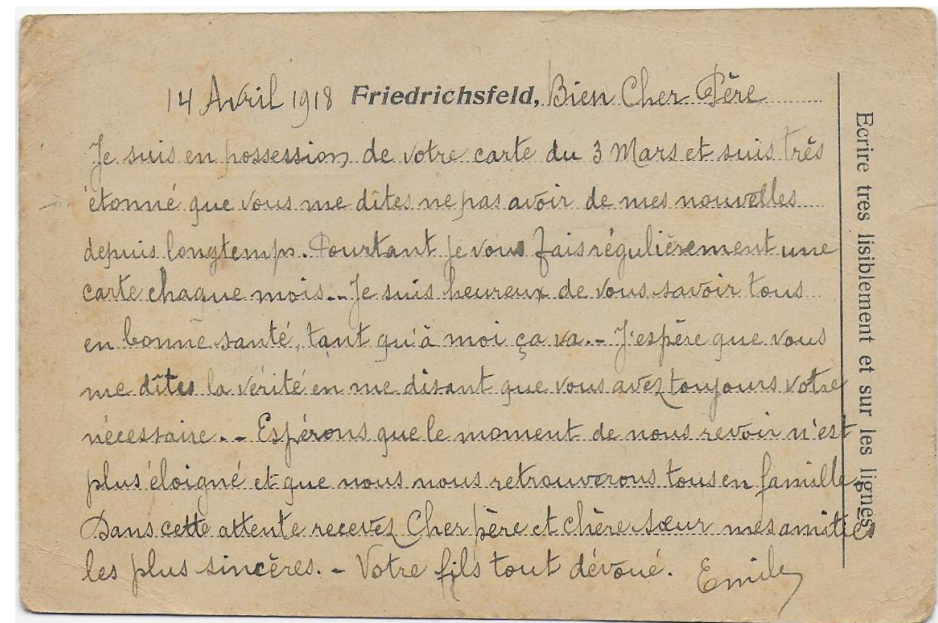 14 Avril 1918 Friedrichsfeld, Bien Cher Père
Je suis en possession de votre carte du 3 Mars et suis très
étonné que vous me dîtes ne pas avoir de mes nouvelles
depuis longtemps. Pourtant je vous fais régulièrement une
carte chaque mois.- Je suis heureux de vous savoir tous
en bonne santé, tant qu'à moi ça va.- J'espère que vous
me dîtes la vérité en me disant que vous avez toujours votre
nécessaire.- Espérons que le moment de nous revoir n'est
plus éloigné et que nous nous retrouverons tous en famille.
Dans cette attente recevez Cher père et chère sœur mes amitiés
les plus sincères.- Votre fils tout dévoué. Emile
Ecrire tres lisiblement et sur les lignes